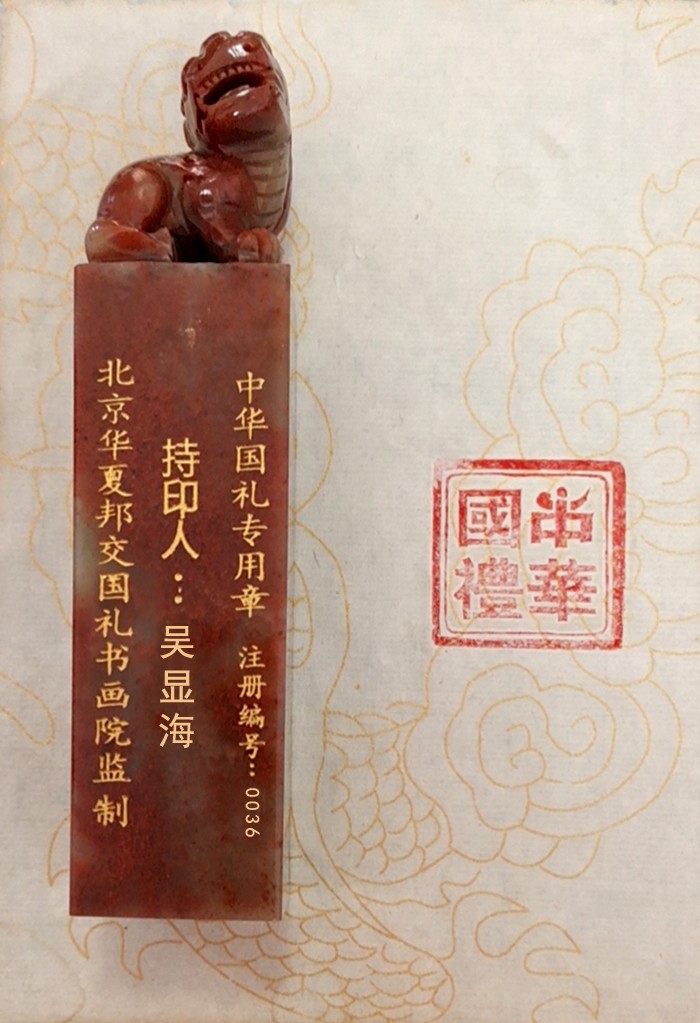 中华国礼专用章 注册编号：0036
持印人：吴显海
北京华夏邦交国礼书画院监制
中華
國禮